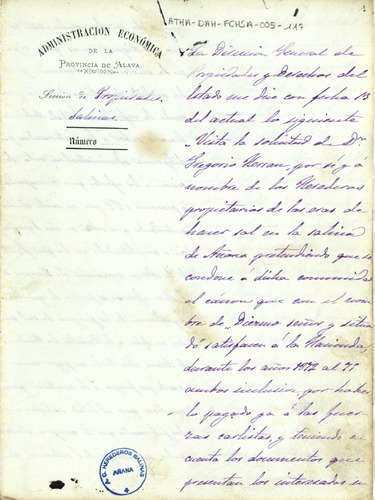 ATHA-DAH-FCHSA-005-117
1
ADMINISTRACION ECONÓMICA
DE LA
PROVINCIA DE ALAVA.
Sección de Propiedades.
Salinas.
Número
La Direccion General de
Propiedades y Derechos del
Estado me dice con fecha 13
del actual lo siguiente
"Vista la solicitud de Dn
Gregorio Herran, por sí y a
nombre de los Herederos
propietarios de las eras de
hacer sal en la salina
de Añana pretendiendo que se
condone á dicha comunidad
el cánon que con el nom
bre de "Diezmo señor y situa
do" satisfacen á la Hacienda,
durante los años 1872 al 75
ambos inclusive, por haber
lo pagado ya á las fuer
zas carlistas, y teniendo en
cuenta los documentos que
presentan los interesados en
G. HEREDEROS SALINAS
AÑANA